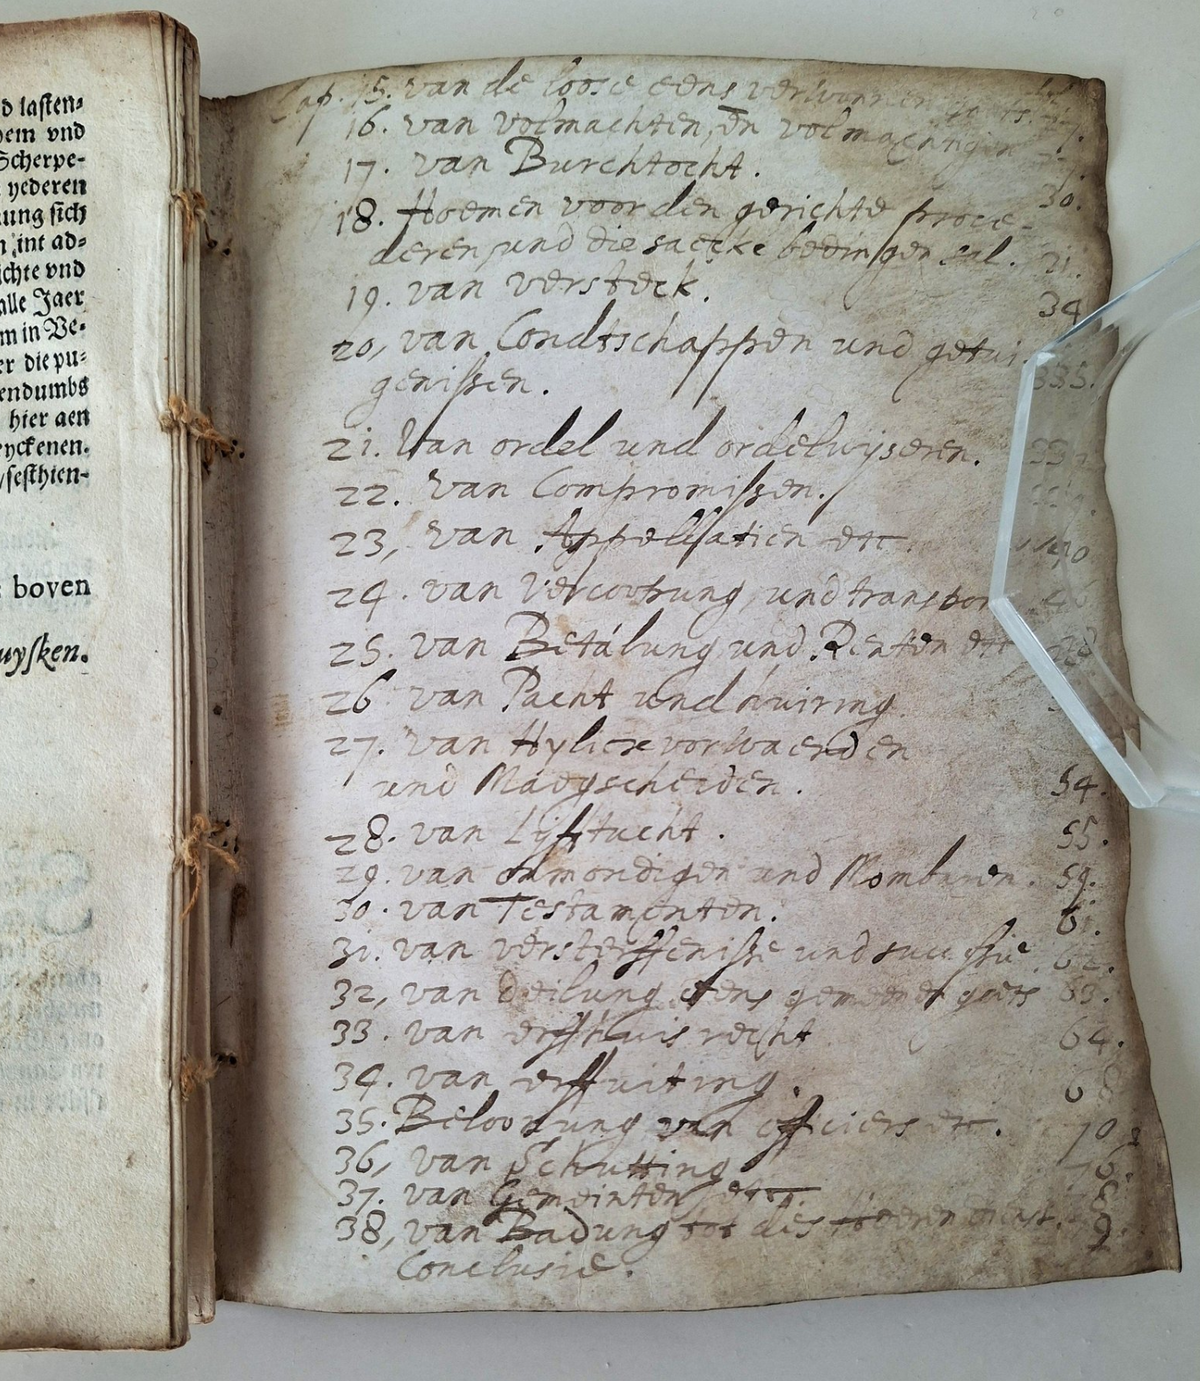 d lasten⸗
hem vnd
Scherpe-
yederen
ung sich
n int ad⸗
ichte vnd
alle Jaer
m in Ve⸗
er die pu⸗
endumbs
hier aen
eyckenen.
/sesthien-
boven
uysken.
Cap. 15. van de loose eens verwonnen
16. van volmachten, en volmachtigen
17. van Burchtocht. 30.
18. Hoemen voor den gerichte proce-
deren, und die saecke bedingen sal. 21.
19. van versteck. 34
20, van Condtschappen und getui-
genissen. 335.
21. Van ordel und ordelwijseren.
22. van Compromissen.
23, van Appellatien etc. 40
24. van Vercoopung, und transpor
25. van Betalung und Renten etc
26 van Pacht und huiring
27. van Hylickvorwaerden
und Maegscheiden. 54.
28. van Lijftucht. 55.
29. van onmondigen und Momburen. 59.
30. van Testamenten. 61.
31. van versterffenisse und successie 62.
32, van deilung eens gemeenen goets 63.
33. van erffhuis recht 64.
34. van erffuiting. 68
35. Beloonung van officiers etc. 70
36, van Schutting 76.
37. van Gemeinten etc. 8
38, van Badung tot des Heeren dienst. 9.
Conclusie.